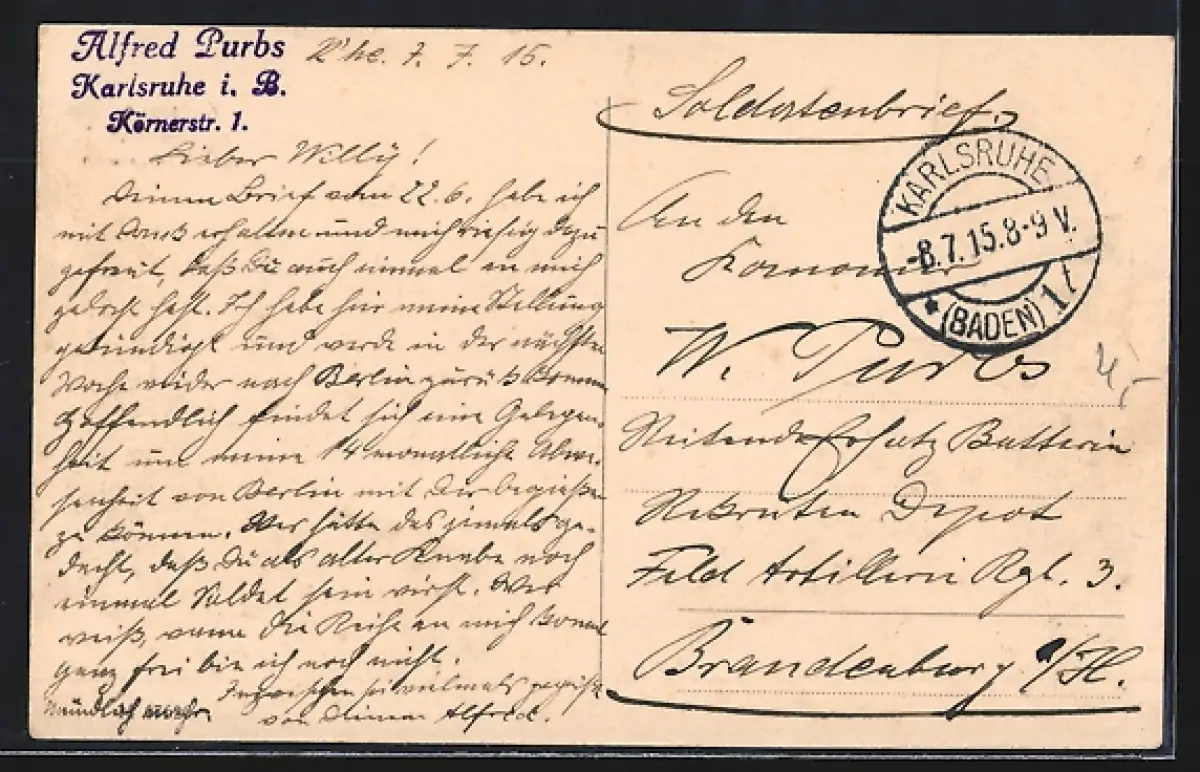 Alfred Purbs
Karlsruhe i. B.
Körnerstr. 1.
K'he. 7. 7. 15.
Lieber Willy!
Deinen Brief vom 22.6. habe ich
mit Dank erhalten und mich riesig dazu
gefreut, daß Du auch einmal an mich
gedacht hast. Ich habe hier meine Stellung
gekündigt und werde in der nächsten
Woche wieder nach Berlin zurück kommen
Hoffendlich findet sich eine Gelegen-
heit um meine 14 monatliche Abwe-
senheit von Berlin mit Dir begießen
zu können. Wer hätte das jemals ge-
dacht, daß Du als alter Knabe noch
einmal Soldat sein wirst. Wer
weiß, wann die Reihe an mich kommt
ganz frei bin ich noch nicht.
Inzwischen sei vielmals gegrüßt
von Deinem Alfred.
Mündlich mehr
Soldatenbrief.
An den
Kanonier
W. Purbs
Reitende Ersatz Batterie
Rekruten Depot
Feld Artillerie Rgt. 3.
Brandenburg a/H.
KARLSRUHE
-8.7.15.8-9 V.
* (BADEN) 1